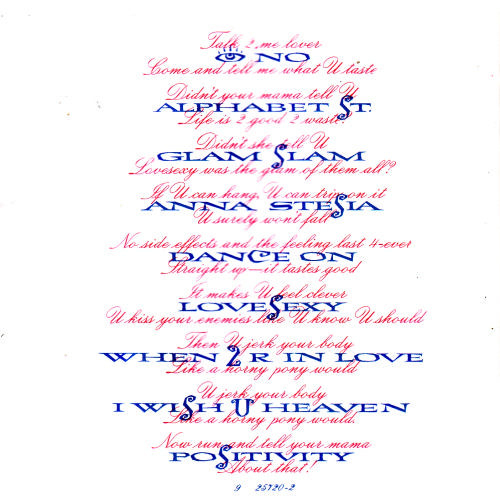 Talk 2 me lover
👁 NO
Come and tell me what U taste
Didn't your mama tell U
ALPHABET ST.
Life is 2 good 2 waste?
Didn't she tell U
GLAM SLAM
Lovesexy was the glam of them all?
If U can hang, U can trip on it
ANNA STESIA
U surely won't fall
No side effects and the feeling last 4-ever
DANCE ON
Straight up—it tastes good
It makes U feel clever
LOVESEXY
U kiss your enemies like U know U should
Then U jerk your body
WHEN 2 R IN LOVE
Like a horny pony would
U jerk your body
I WISH U HEAVEN
Like a horny pony would.
Now run and tell your mama
POSITIVITY
About that!
9 25720-2